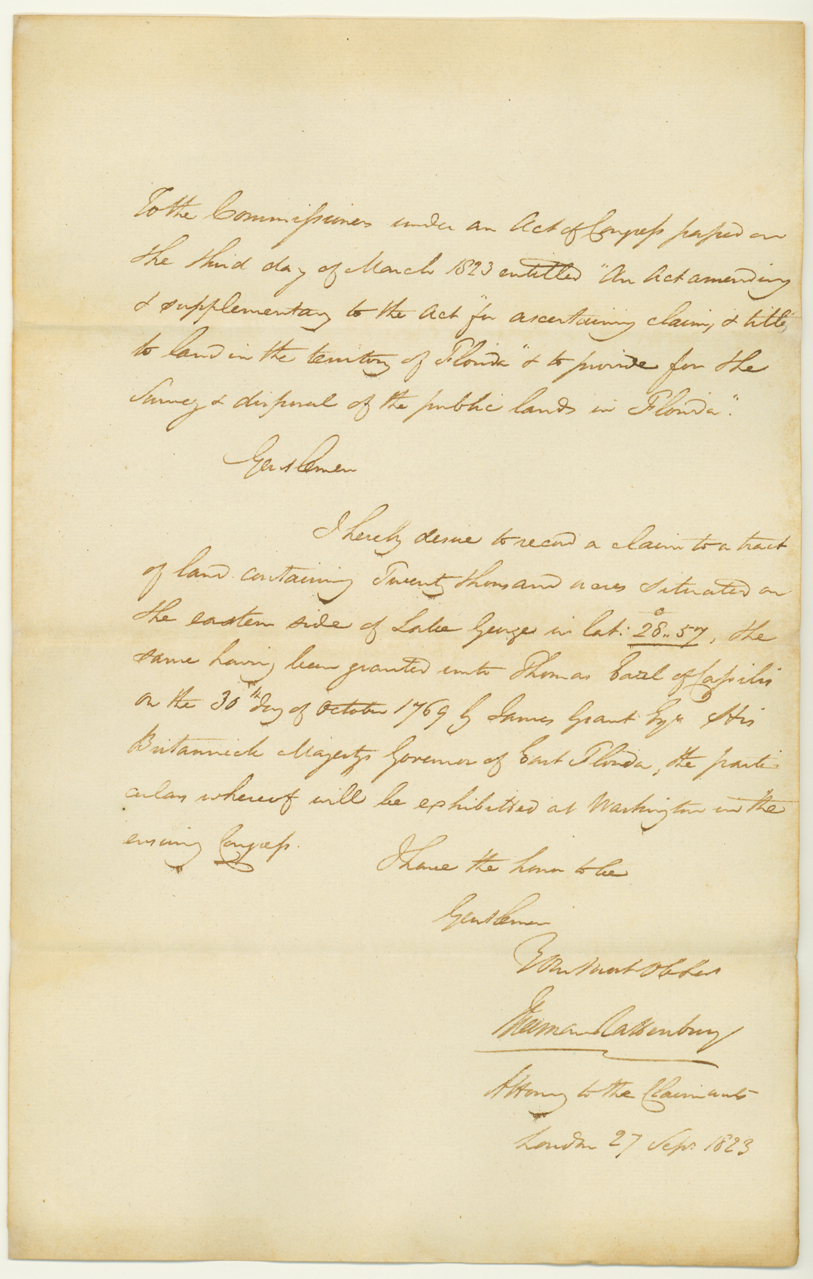 To the Commissioners under an Act of Congress passed on
the third day of March 1823 entitled "An Act amending
& supplementary to the Act "for ascertaining claims & titles
to land in the territory of Florida" & to provide for the
Survey & disposal of the public lands in Florida".
Gentlemen
I hereby desire to record a claim to a tract
of land containing Twenty thousand acres situated on
the eastern side of Lake George in lat: 28°.. 57, the
same having been granted unto Thomas Earl of Cassilis
on the 30th day of October 1769 by James Grant Esqr His
Britannick Majestys Governor of East Florida, the parti
culars whereof will be exhibitted at Washington in the
ensuing Congress.
I have the honor to be
Gentlemen
Your most Ob
Rattenbury
Attorney to the Claimants
London 27 Sepr 1823